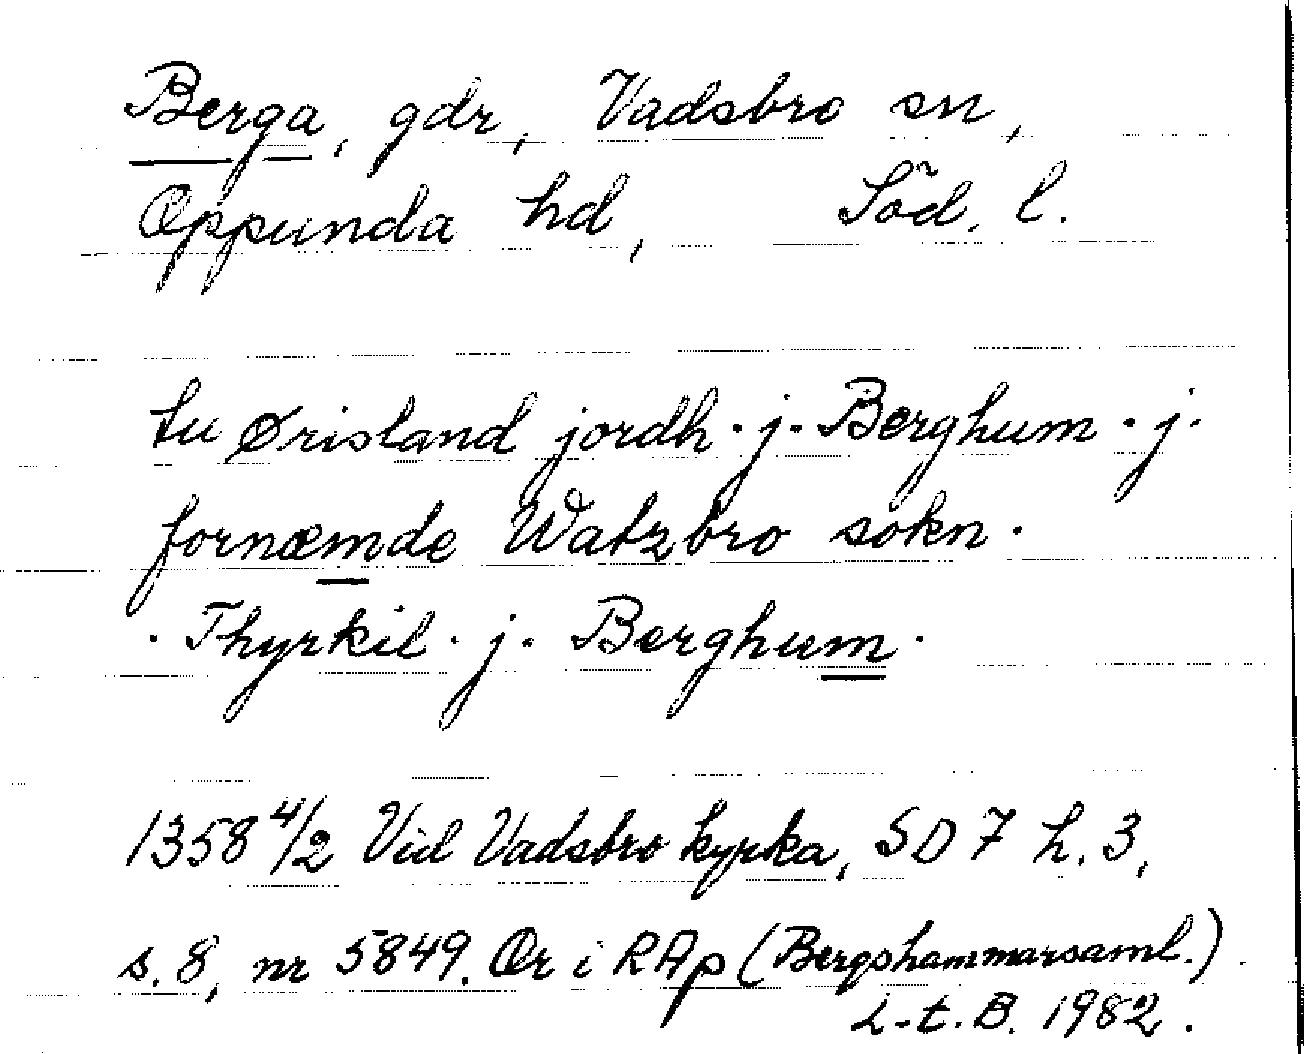 Berga, gdr, Vadsbro sn,
Oppunda hd, Söd. l.
tu ørisland jordh · j · Berghum · j ·
fornæmde Watzbro sokn ·
· Thyrkil · j · Berghum ·
1358 4/2 Vid Vadsbro kyrka, SD 7 h. 3,
s. 8, nr 5849. Or i RAp (Bergshammarsaml.)
L-t. B. 1982.